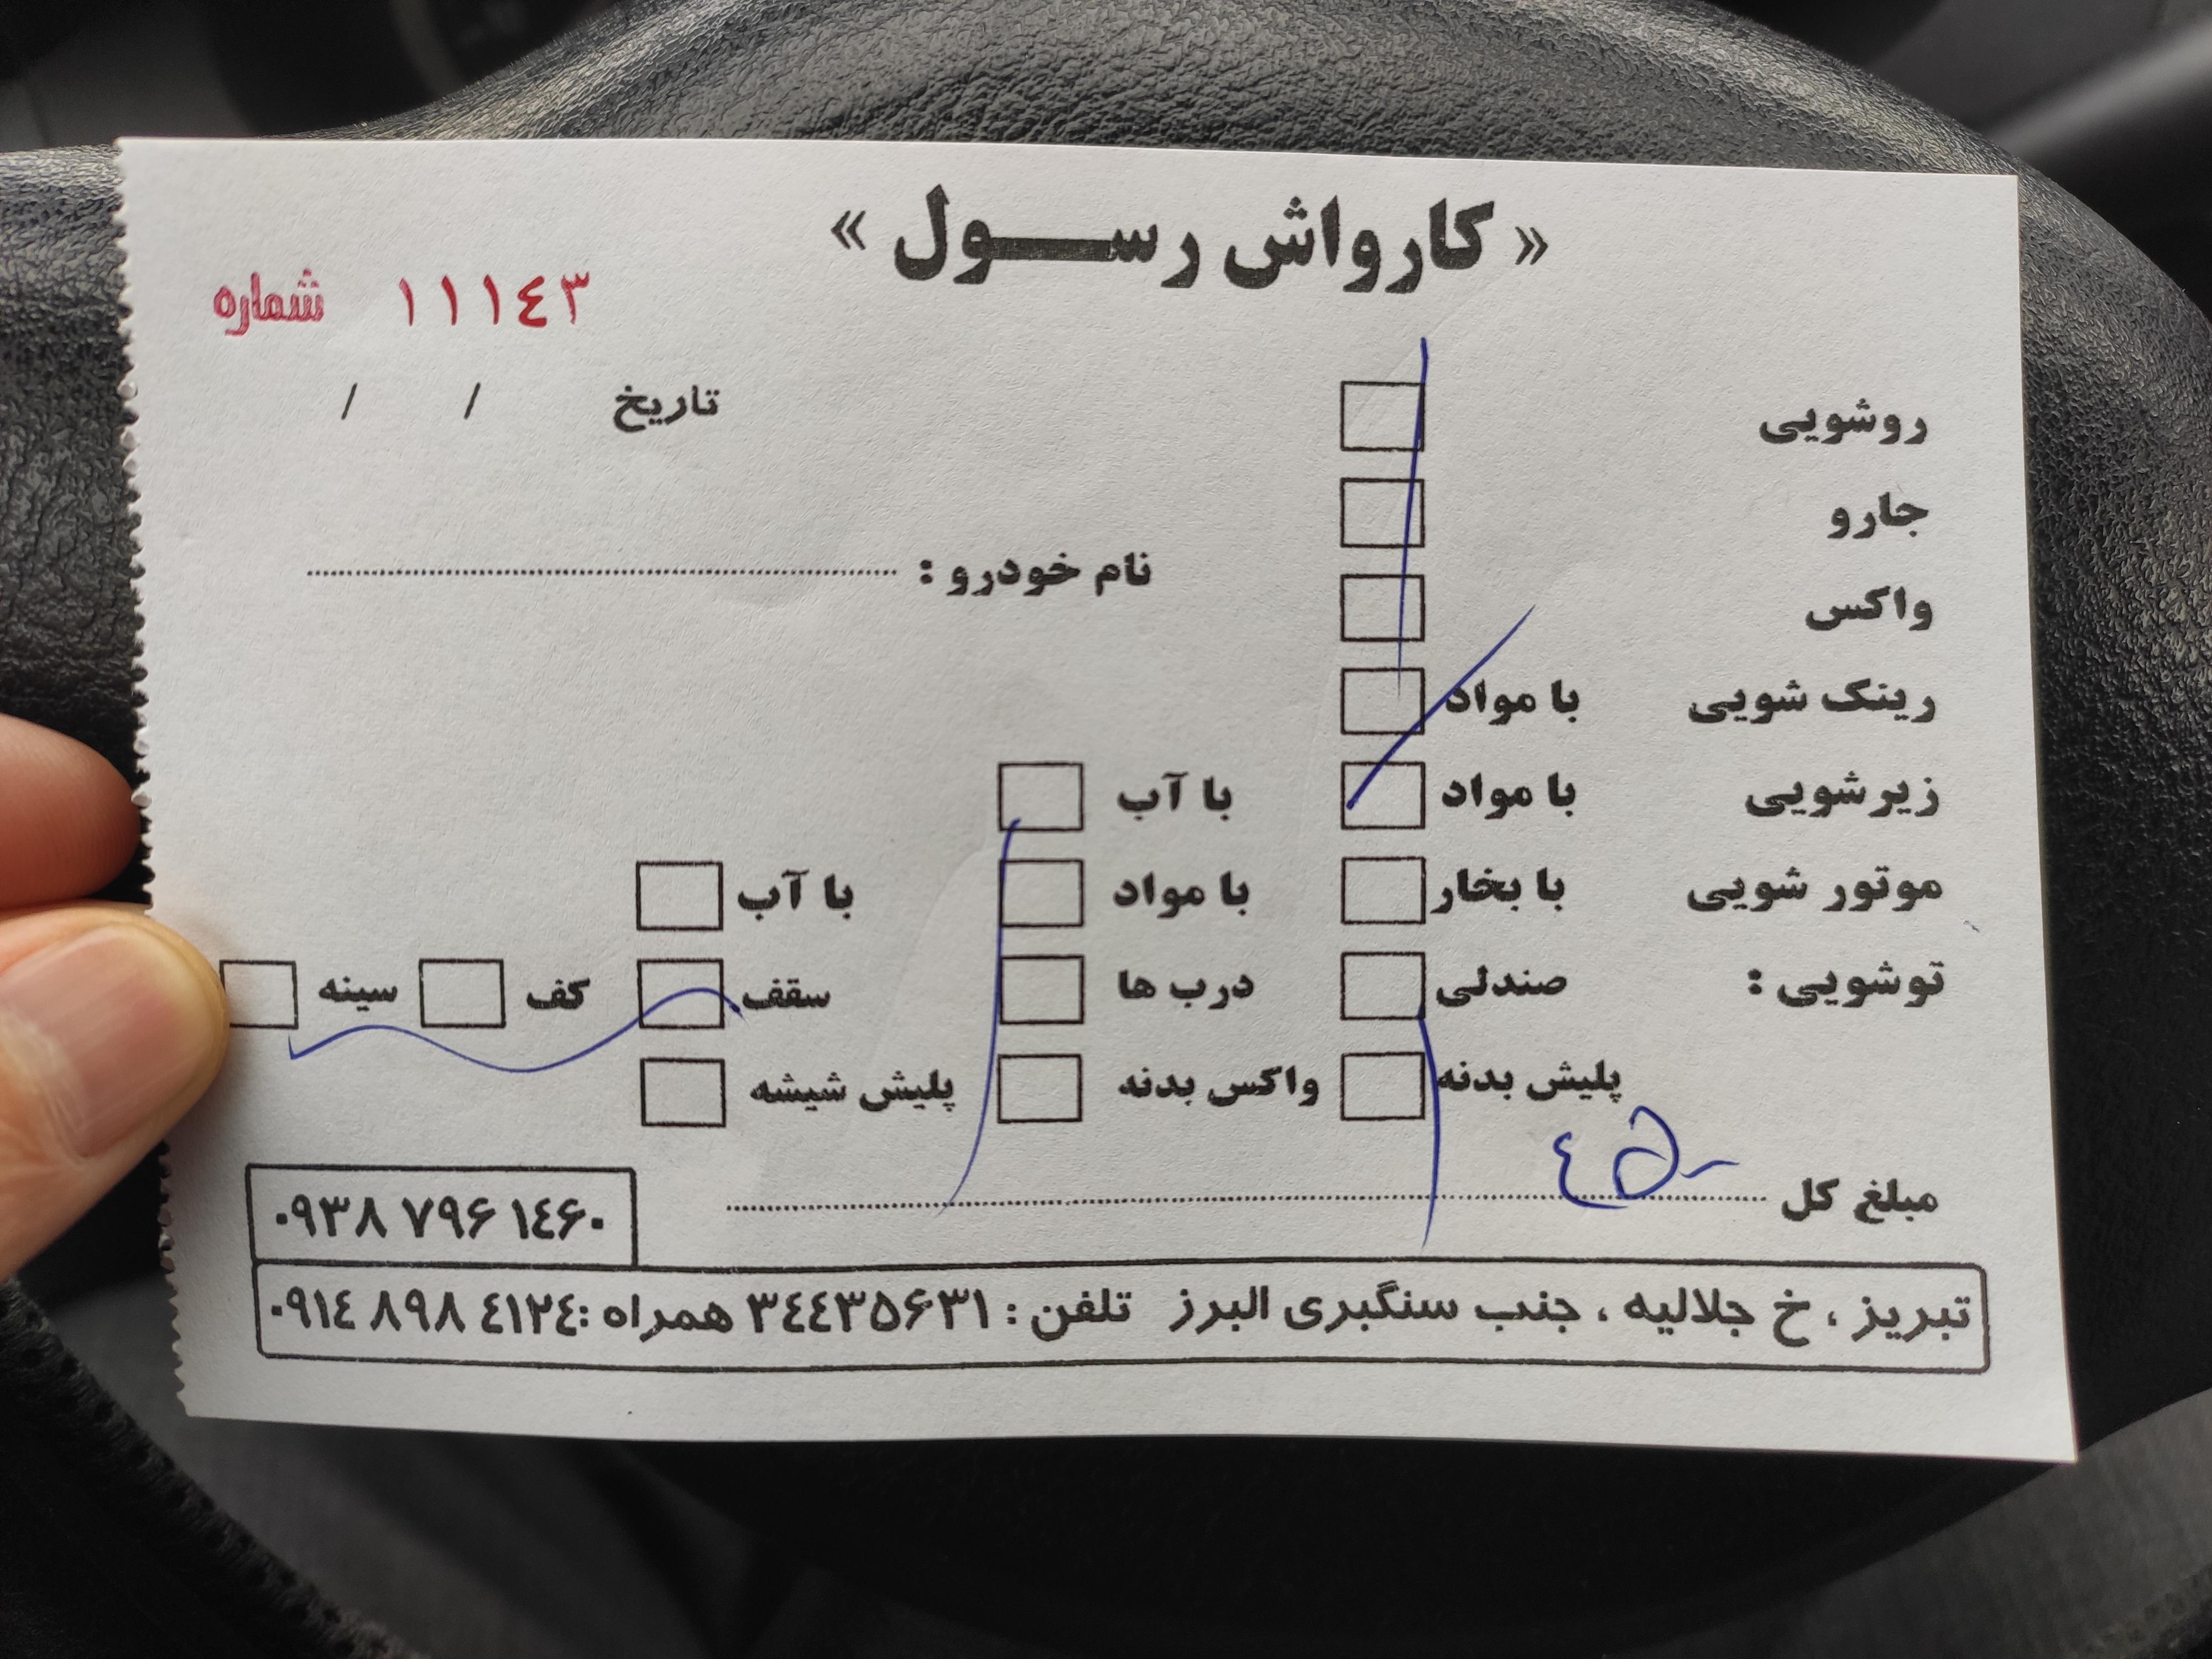 « کارواش رسـول »
شماره ١١١٤٣
تاریخ / /
روشویی
جارو
نام خودرو :
واکس
رینگ شویی با مواد
زیرشویی با مواد با آب
موتور شویی با بخار با مواد با آب
توشویی : صندلی درب ها سقف کف سینه
پلیش بدنه واکس بدنه پلیش شیشه
مبلغ کل ٤۵۰
۰۹۳۸ ۷۹۶ ۱٤۶۰
تبریز ، خ جلالیه ، جنب سنگبری البرز تلفن : ۳٤٤۳۵۶۳۱ همراه :۰۹۱٤ ۸۹۸ ٤۱۲٤